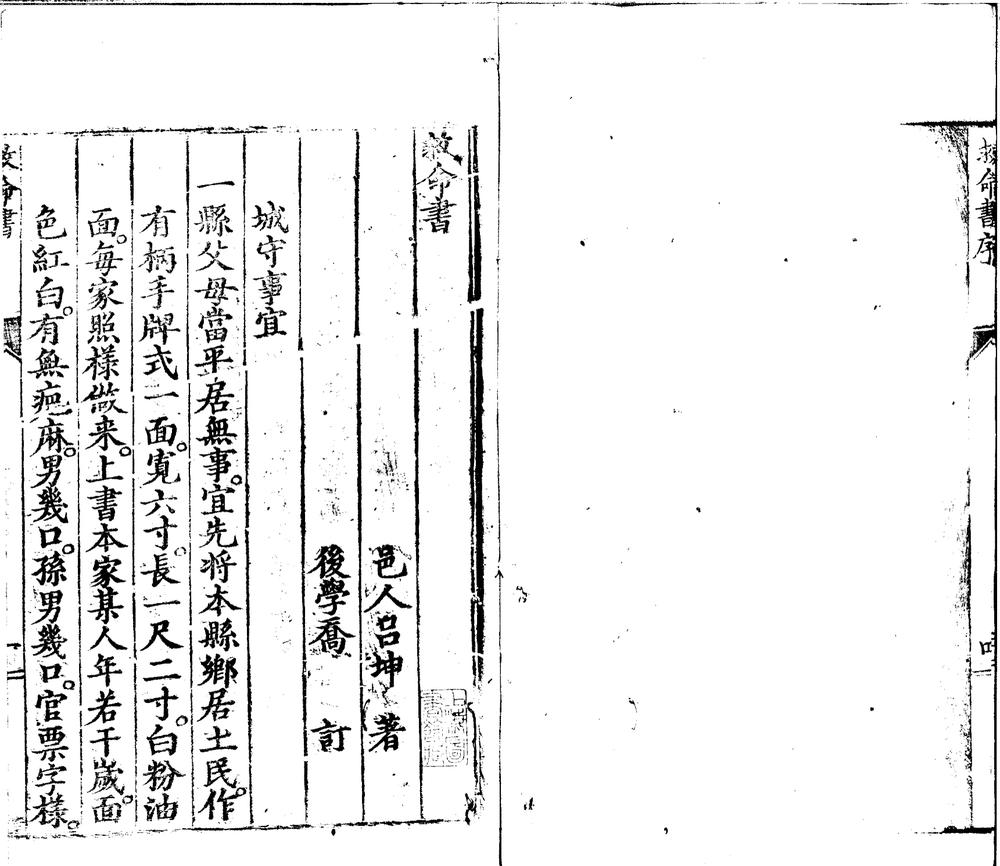 救命書序
救命書
邑人呂坤 著
後學喬 訂
城守事宜
一縣父母當平居無事。宜先将本縣鄉居士民。作
有柄手牌式一面。寬六寸。長一尺二寸。白粉油
面。每家照樣做来。上書本家某人年若干歲。面
色紅白。有無疤麻。男幾口。孫男幾口。官票字樣。
救命書